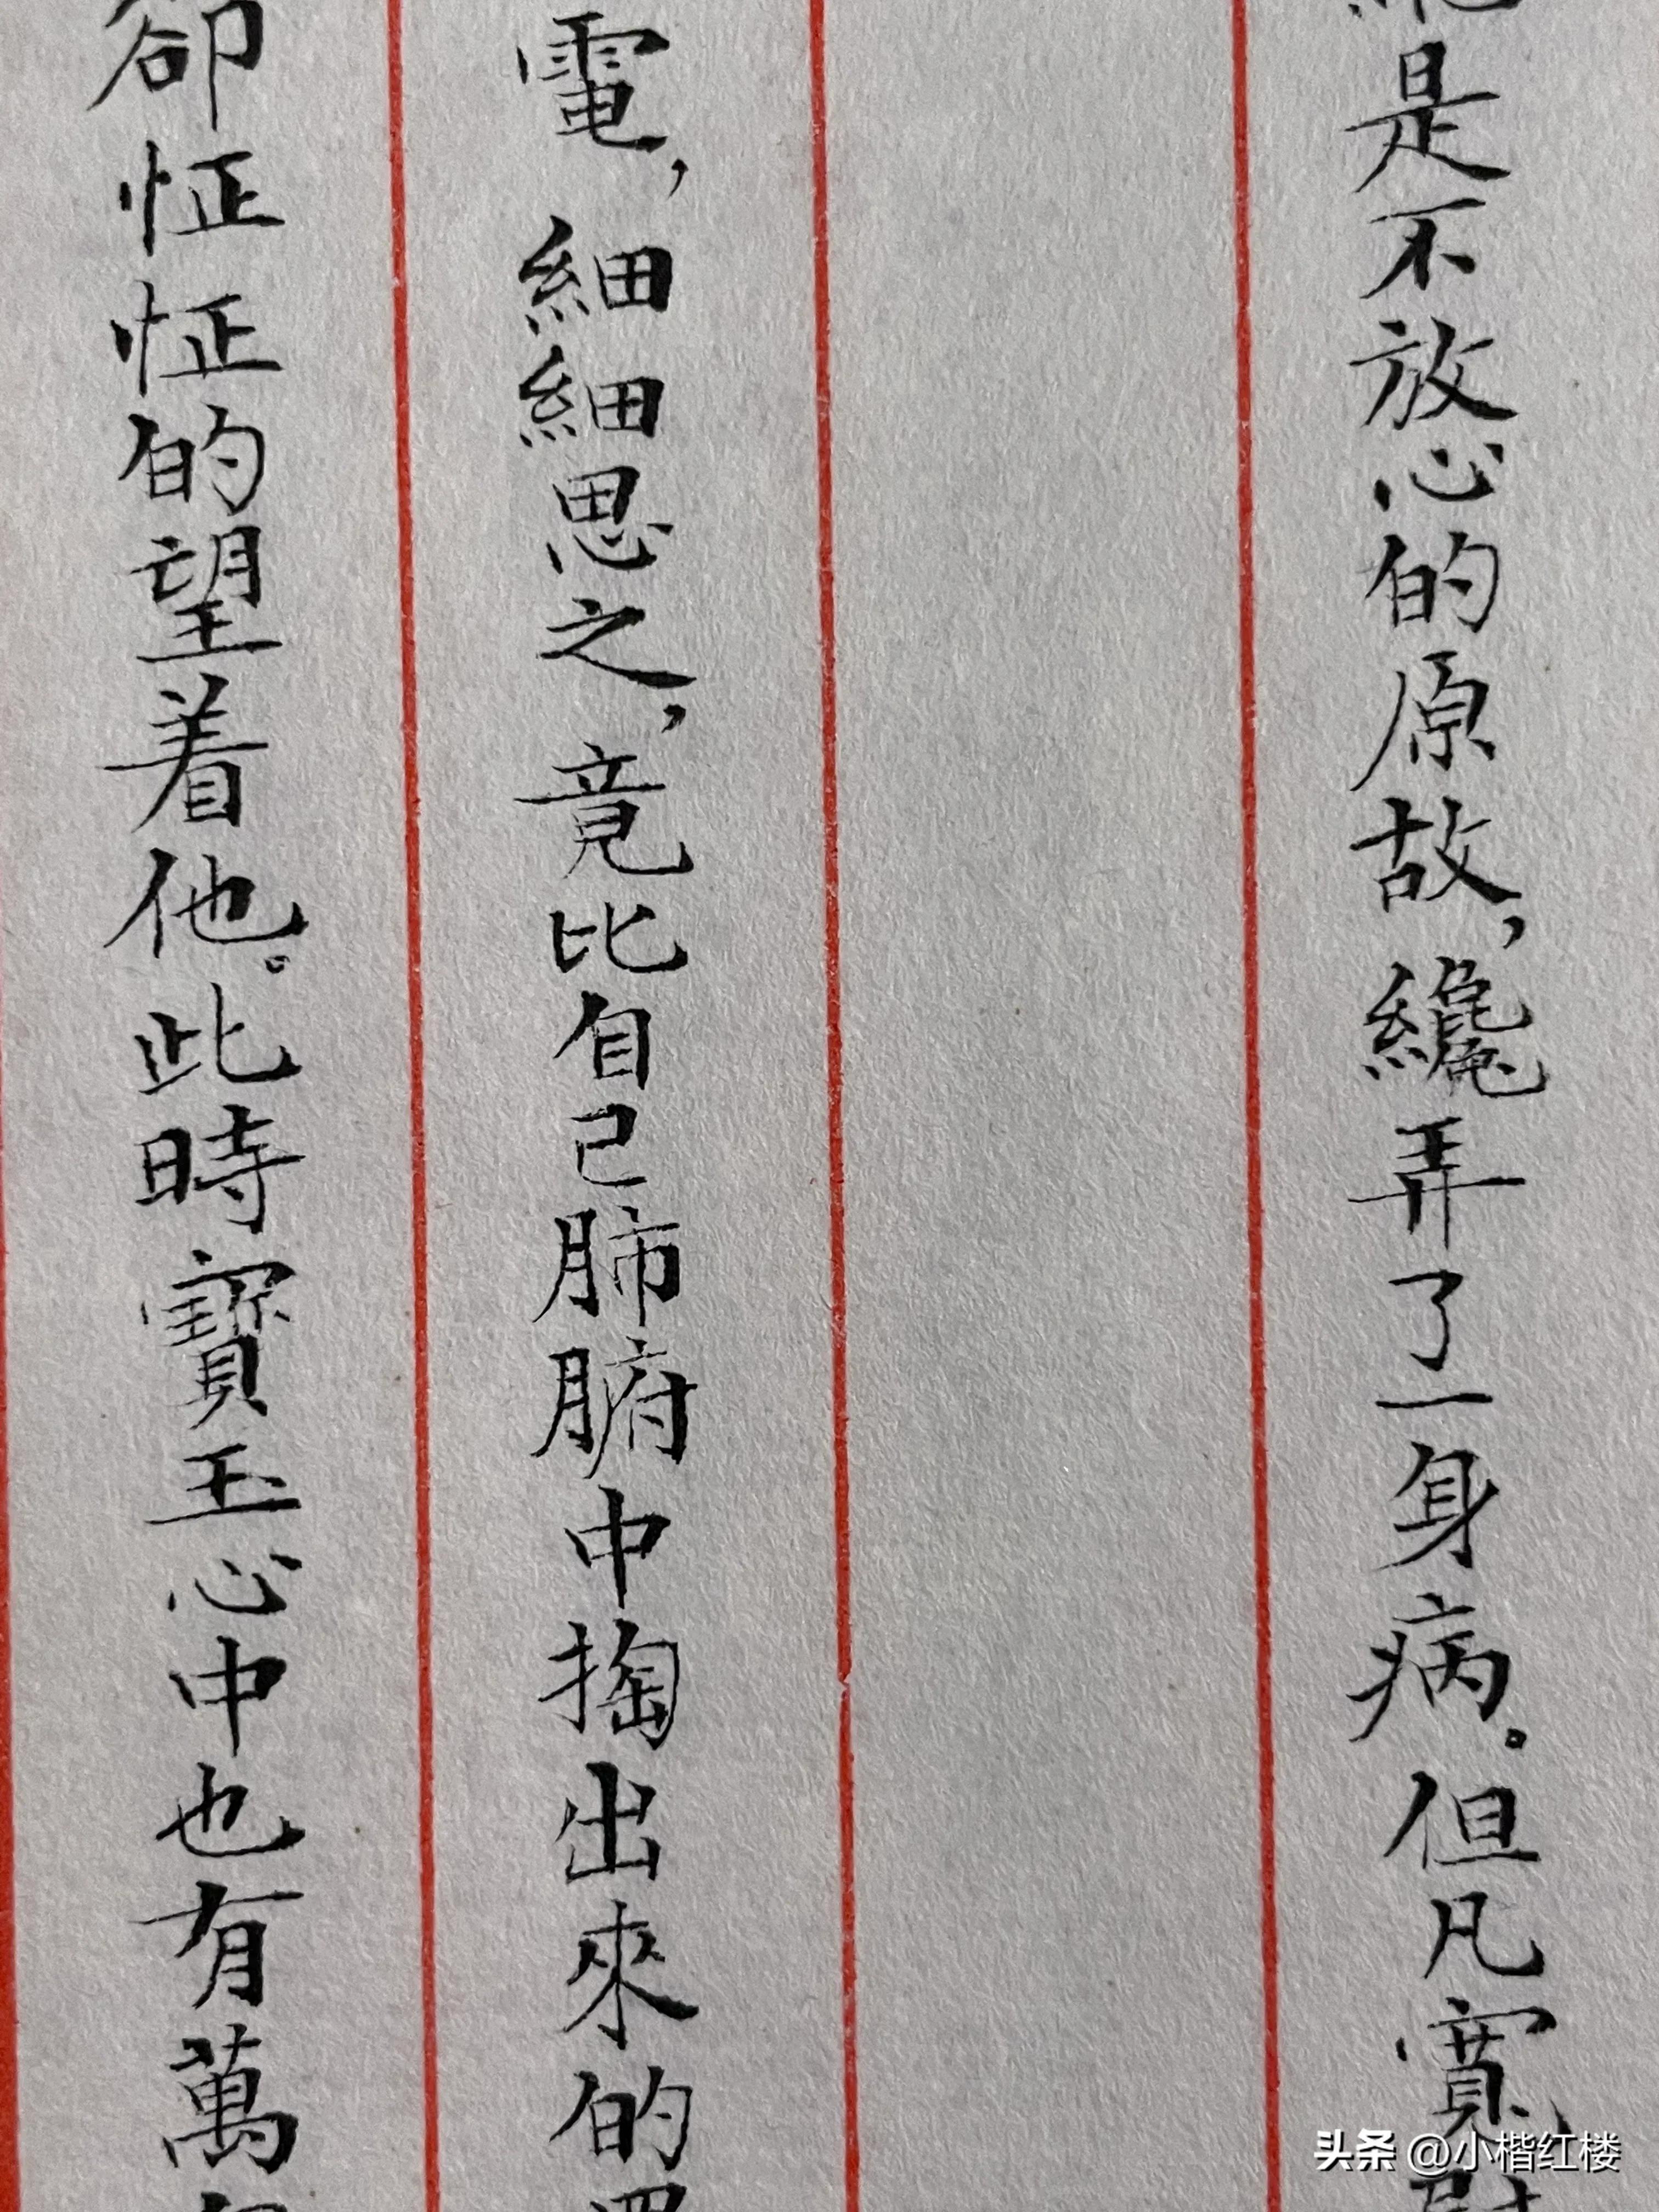 是不放心的原故，纔弄了一身病。但凡寬
電，細細思之，竟比自己肺腑中掏出來的
卻怔怔的望着他。此時寶玉心中也有萬
头条 @小楷红楼